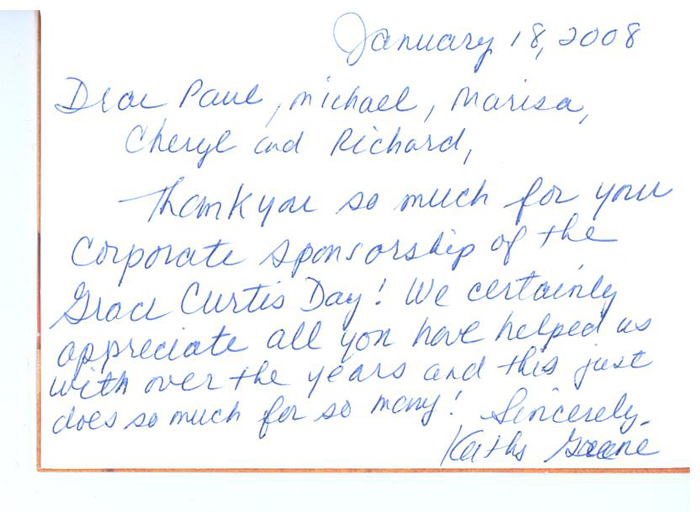 January 18, 2008
Dear Paul, Michael, Marisa,
Cheryl and Richard,
Thank you so much for your
Corporate sponsorship of the
Grace Curtis Day! We certainly
appreciate all you have helped us
with over the years and this just
does so much for so many! Sincerely,
Kathy